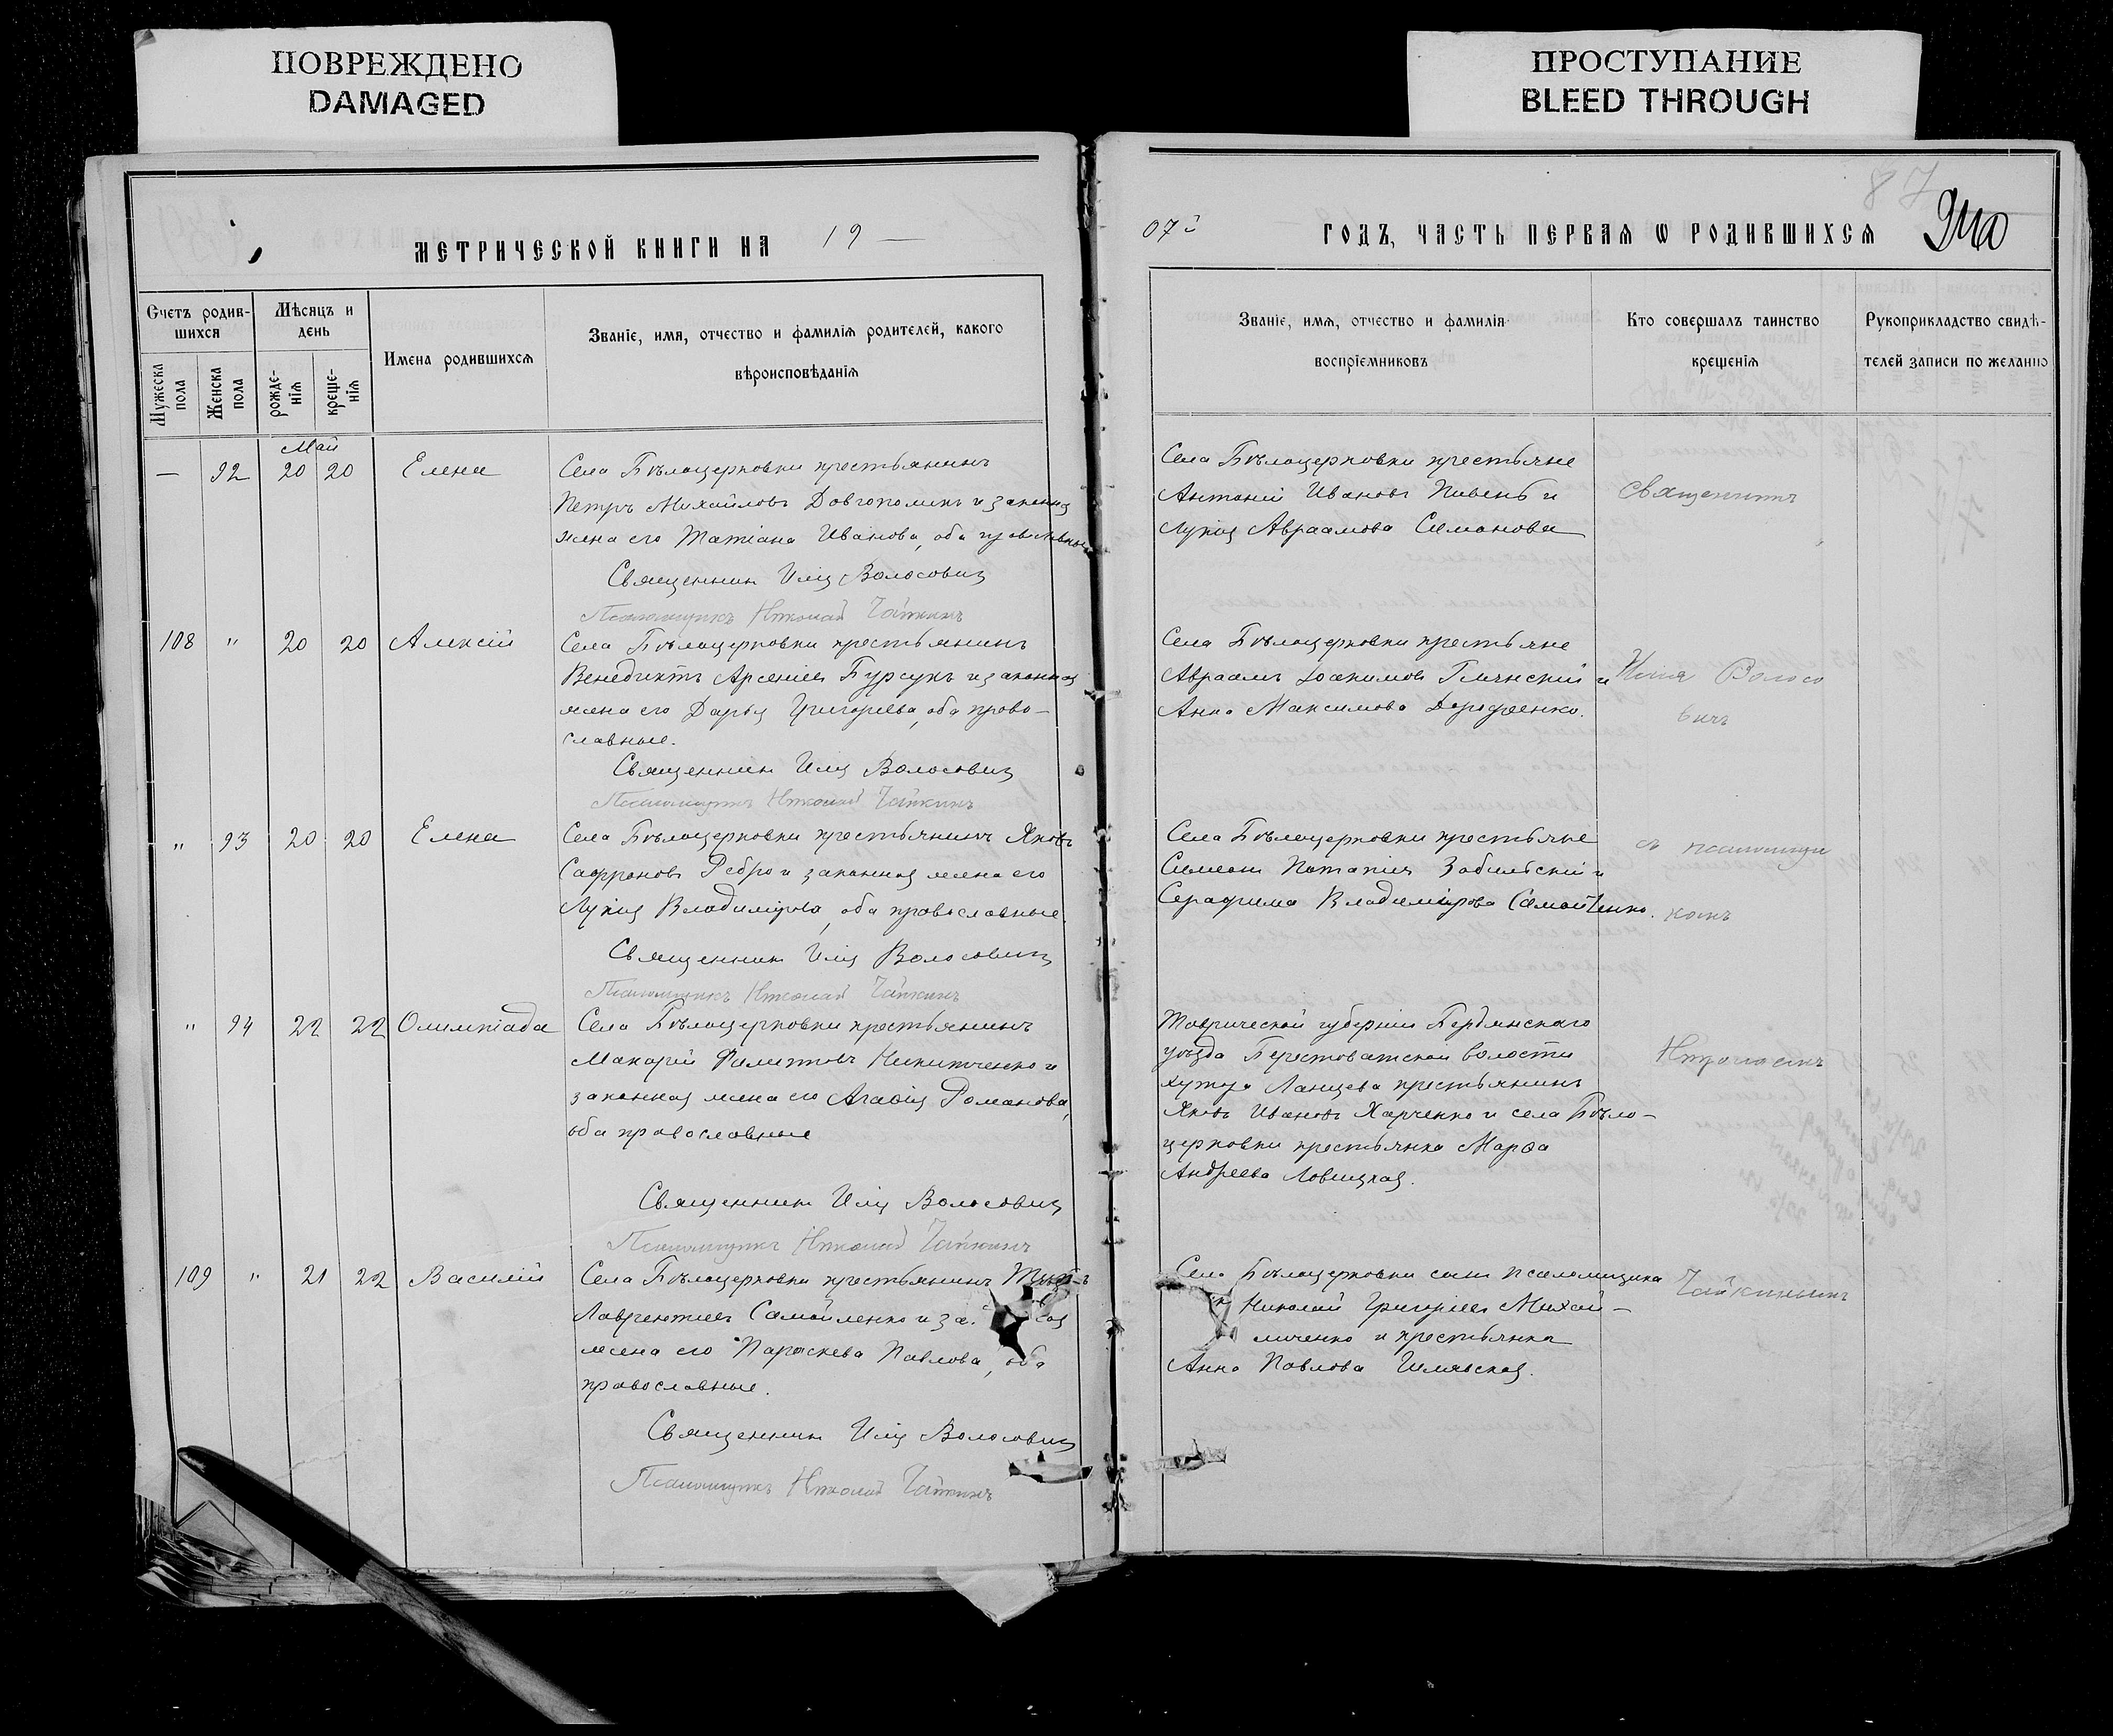 ПОВРЕЖДЕНО
DAMAGED
ПРОСТУПАНИЕ
BLEED THROUGH
87
МЕТРИЧЕСКОЙ КНИГИ НА 19
07
ГОДЪ, ЧАСТЬ ПЕРВАЯ Ѡ РОДИВШИХСЯ
Счетъ родив-
шихся
Мужеска
пола
Женска
пола
Мѣсяцъ и
день
рожде-
нія
креще-
нія
Имена родившихся
Званіе, имя, отчество и фамилія родителей, какого
вѣроисповѣданія
Званіе, имя, отчество и фамилія
воспріемниковъ
Кто совершалъ таинство
крещенія
Рукоприкладство свидѣ-
телей записи по желанію
Май
— 92 20 20 Елена
Села Бѣлоцерковки крестьянинъ
Петръ Михайловъ Довгополикъ и законная
жена его Татіана Иванова, оба православные
Священникъ Илія Волосовичъ
Псаломщикъ Николай Чайкинъ
Села Бѣлоцерковки крестьяне
Антоній Ивановъ Пивень и
Лукія Авраамова Симонова
Священникъ
108 " 20 20 Алексій
Села Бѣлоцерковки крестьянинъ
Венедиктъ Арсеніевъ Бурсукъ и законная
жена его Дарья Григорьева, оба право-
славные.
Священникъ Илія Волосовичъ
Псаломщикъ Николай Чайкинъ
Села Бѣлоцерковки крестьяне
Авраамъ Іоакимовъ Глинскій и
Анна Максимова Дорофеенко.
Илія Волосо
вичъ
" 93 20 20 Елена
Села Бѣлоцерковки крестьянинъ Яковъ
Сафроновъ Ребро и законная жена его
Лукія Владимірова, оба православные.
Священникъ Илія Волосовичъ
Псаломщикъ Николай Чайкинъ
Села Бѣлоцерковки крестьяне
Симеонъ Потапіевъ Забильскій и
Серафима Владимірова Самойленко.
съ псаломщи
комъ
" 94 22 22 Олимпіада
Села Бѣлоцерковки крестьянинъ
Макарій Филипповъ Никитченко и
законная жена его Агафія Романова,
оба православные
Священникъ Илія Волосовичъ
Псаломщикъ Николай Чайкинъ
Таврической губерніи Бердянскаго
уѣзда Берестоватской волости
хутора Ланцева крестьянинъ
Яковъ Ивановъ Харченко и села Бѣло-
церковки крестьянка Марѳа
Андреева Ловицкая.
Николаемъ
109 " 21 22 Василій
Села Бѣлоцерковки крестьянинъ
Лаврентіевъ Самойленко и за
жена его Параскева Павлова, оба
православные.
Священникъ Илія Волосовичъ
Псаломщикъ Николай Чайкинъ
Села Бѣлоцерковки сынъ псаломщика
Николай Григоріевъ Михай-
личенко и крестьянка
Анна Павлова Шлявская.
Чайкинымъ